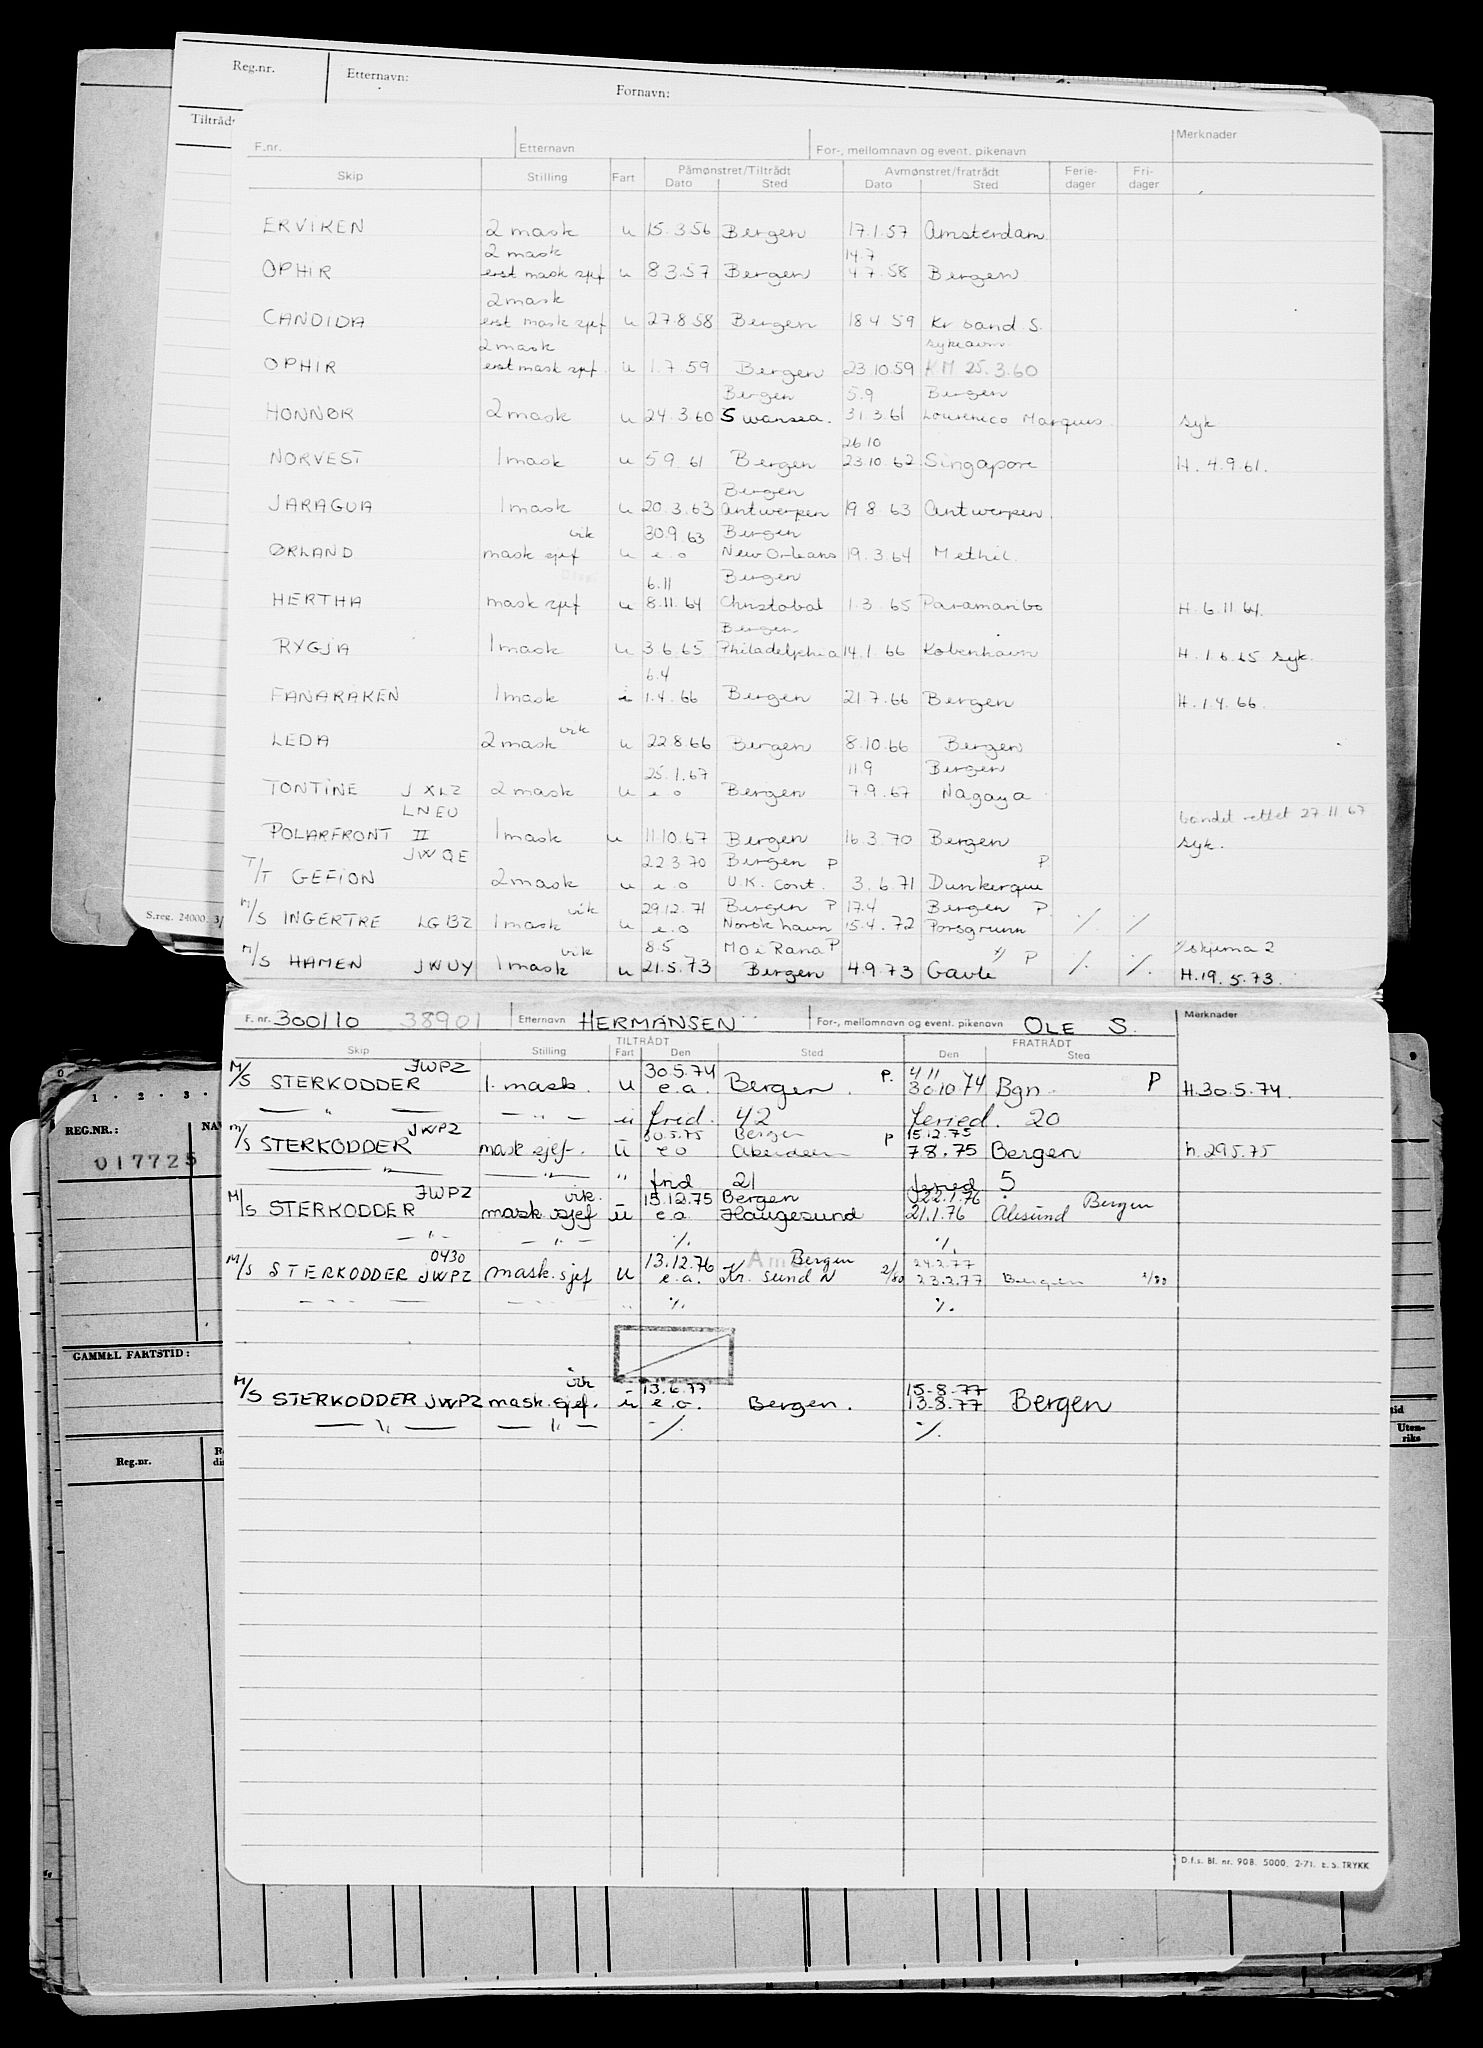 Reg.nr. Etternavn: Fornavn:
Tiltrådt
F.nr. Etternavn For-, mellomnavn og event. pikenavn Merknader
Skip Stilling Fart Påmønstret/Tiltrådt Avmønstret/fratrådt Ferie- Fri-
Dato Sted Dato Sted dager dager
ERVIKEN 2 mask u 15.3.56 Bergen 17.1.57 Amsterdam
2 mask 14.7
OPHIR erst mask sjef u 8.3.57 Bergen 4.7.58 Bergen
2 mask
CANDIDA erst mask sjef u 27.8.58 Bergen 18.4.59 Kr sand S.
2 mask sykeavm.
OPHIR erst mask sjef. u 1.7.59 Bergen 23.10.59 KM 25.3.60
Bergen 5.9 Bergen
HONNØR 2 mask u 24.3.60 Swansea. 31.3.61 Lourenico Marques syk
26.10
NORVEST 1 mask u 5.9.61 Bergen 23.10.62 Singapore H. 4.9.61.
Bergen
JARAGUA 1 mask u 20.3.63 Antwerpen 19.8.63 Antwerpen
vik 30.9.63 Bergen
ØRLAND mask sjef u e.o New Orleans 19.3.64 Methil.
6.11 Bergen
HERTHA mask sjef u 8.11.64 Christobal 1.3.65 Paramaribo H. 6.11.64.
Bergen
RYGJA 1 mask u 3.6.65 Philadelphia 14.1.66 København H. 1.6.65 syk.
6.4
FANARÅKEN 1 mask i 1.4.66 Bergen 21.7.66 Bergen H. 1.4.66.
vik
LEDA 2 mask u 22.8.66 Bergen 8.10.66 Bergen
25.1.67 11.9 Bergen
TONTINE JXLZ 2 mask u e.o Bergen 7.9.67 Nagaya
LNEU båndet rettet 27.11.67
POLARFRONT II 1 mask u 11.10.67 Bergen 16.3.70 Bergen syk.
JWQE 22.3.70 Bergen P P
T/T GEFION 2 mask u e.o U.K. Cont. 3.6.71 Dunkerque
vik 29.12.71 Bergen P 17.4 Bergen P
M/S INGERTRE LGBZ 1 mask u e.o Norsk havn 15.4.72 Porsgrunn ./. ./.
vik 8.5 Mo i Rana P P 1/ skjema 2
M/S HAMEN JWUY 1 mask u 21.5.73 Bergen 4.9.73 Gavle ./. ./. H.19.5.73.
S.reg. 24000. 3/
F. nr. 300110 38901 Etternavn HERMANSEN For-, mellomnavn og event. pikenavn OLE S. Merknader
TILTRÅDT FRATRÅDT
Skip Stilling Fart Den Sted Den Sted
JWPZ 30.5.74 P. 4/11 P
M/S STERKODDER 1. mask. u e.a. Bergen. 30.10.74 Bgn. H.30.5.74.
— " — — " — u frid. 42 feried. 20
JWPZ 30.5.75 Bergen P 15.12.75
M/S STERKODDER mask sjef. u e o Aberdeen 7.8.75 Bergen h.29.5.75
— " — — " — " frid 21 feried 5
JWPZ vik. 15.12.75 Bergen 22.1.76 Bergen
M/S STERKODDER mask sjef u e.a Haugesund 21.1.76 Ålesund
— " — — " — ./. ./.
0430 13.12.76 Bergen 24.2.77
M/S STERKODDER JWPZ mask. sjef u e.a. Kr. sund N 2/80 23.2.77 Bergen 2/80
— " — — " — " ./. ./.
vik 13.6.77 15-8-77
M/S STERKODDER JWPZ mask. sjef. u e.o. Bergen. 13-8-77 Bergen
— " — — " — ./. ./.
REG.NR.:
017725
GAMMEL FARTSTID:
Reg.nr.
Uten-
riks
D.f.s. Bl. nr. 908. 5000. 2-71. E. S. TRYKK